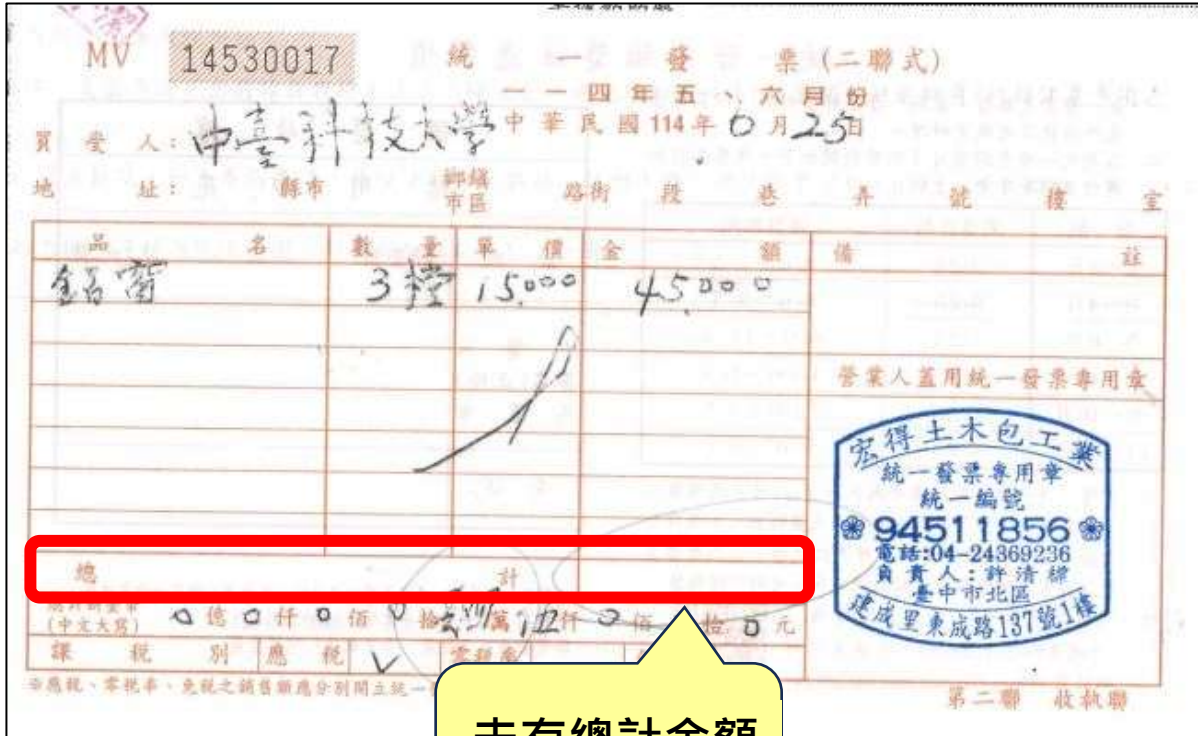 MV 14530017 統一發票(二聯式)
一一四年五、六月份
買受人:中臺科技大學 中華民國114年6月25日
地址: 縣市 鄉鎮市區 路街 段 巷 弄 號 樓 室
品名 數量 單價 金額 備註
鋁窗 3樘 15,000 45,000
營業人蓋用統一發票專用章
宏得土木包工業
統一發票專用章
統一編號
94511856
電話:04-24369236
負責人:許清標
臺中市北區
建成里東成路137號1樓
總計
(中文大寫) 0億0仟0佰0拾肆萬伍仟0佰 拾0元
課稅別 應稅 ✓ 零稅率
※應稅、零稅率、免稅之銷售額應分別開立統一
第二聯 收執聯
未有總計金額